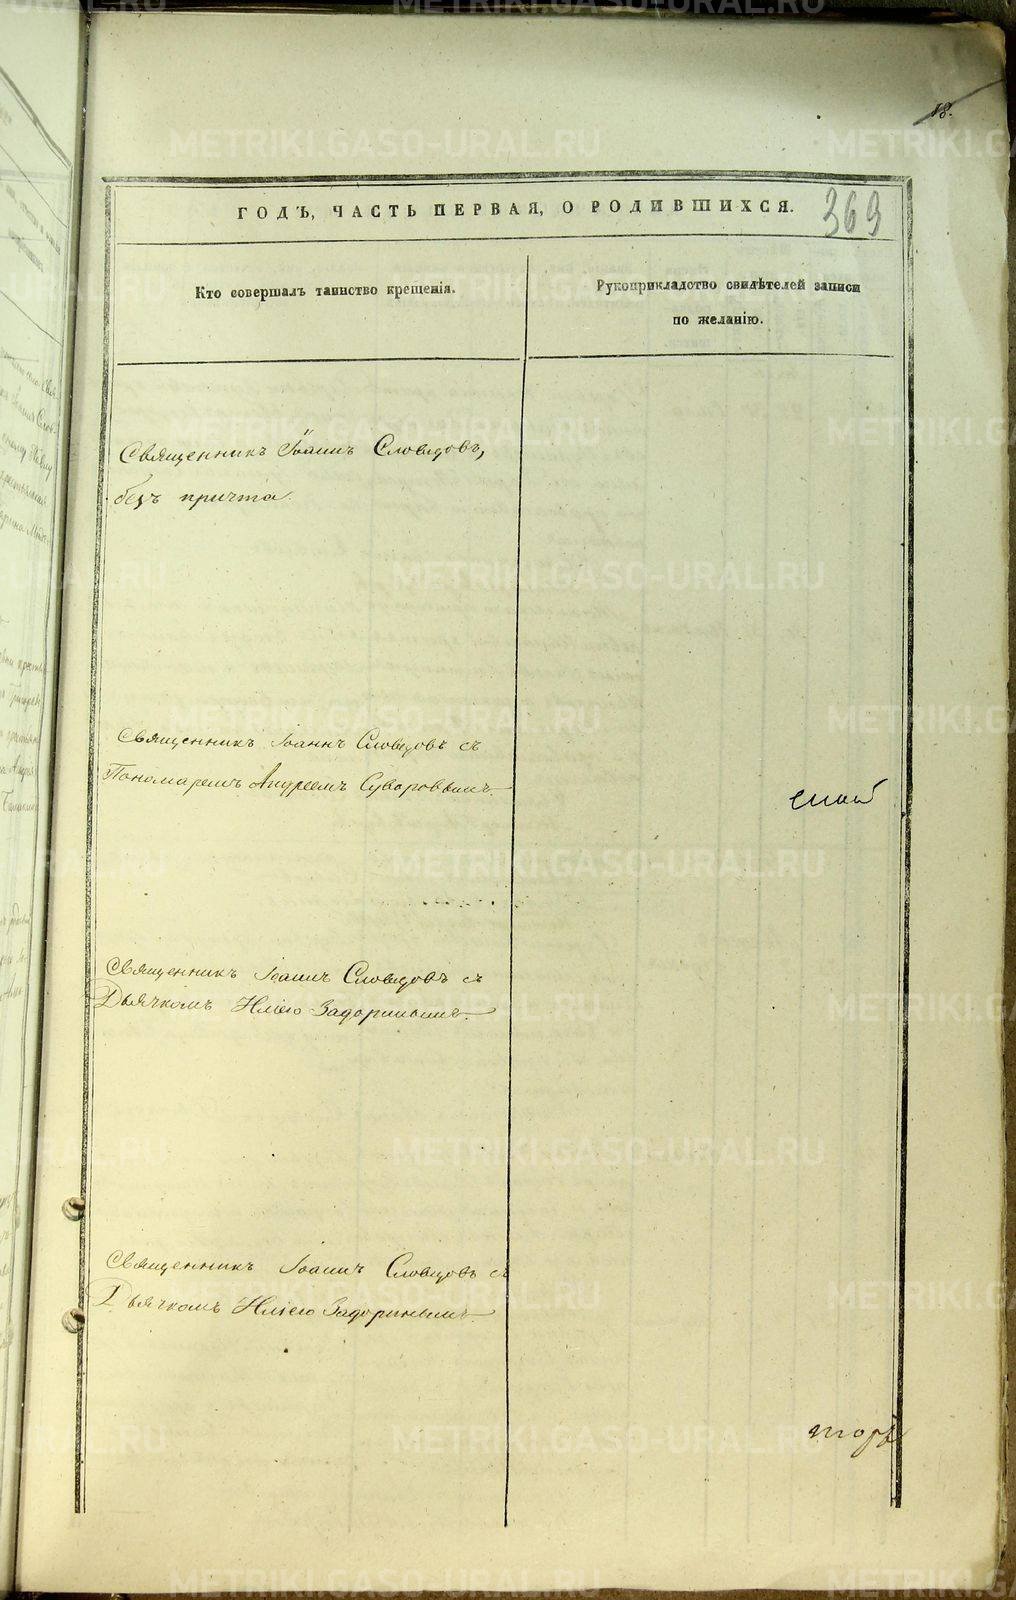 18.
ГОДЪ, ЧАСТЬ ПЕРВАЯ, О РОДИВШИХСЯ.
369
Кто совершалъ таинство крещенія.
Рукоприкладство свидѣтелей записи
по желанію.
Священникъ Іоаннъ Словцовъ,
безъ причта.
Священникъ Іоаннъ Словцовъ съ
Пономаремъ Андреемъ Суворовымъ.
Священникъ Іоаннъ Словцовъ съ
Дьячкомъ Иліею Задоринымъ.
Священникъ Іоаннъ Словцовъ съ
Дьячкомъ Иліею Задоринымъ.
METRIKI.GASO-URAL.RU